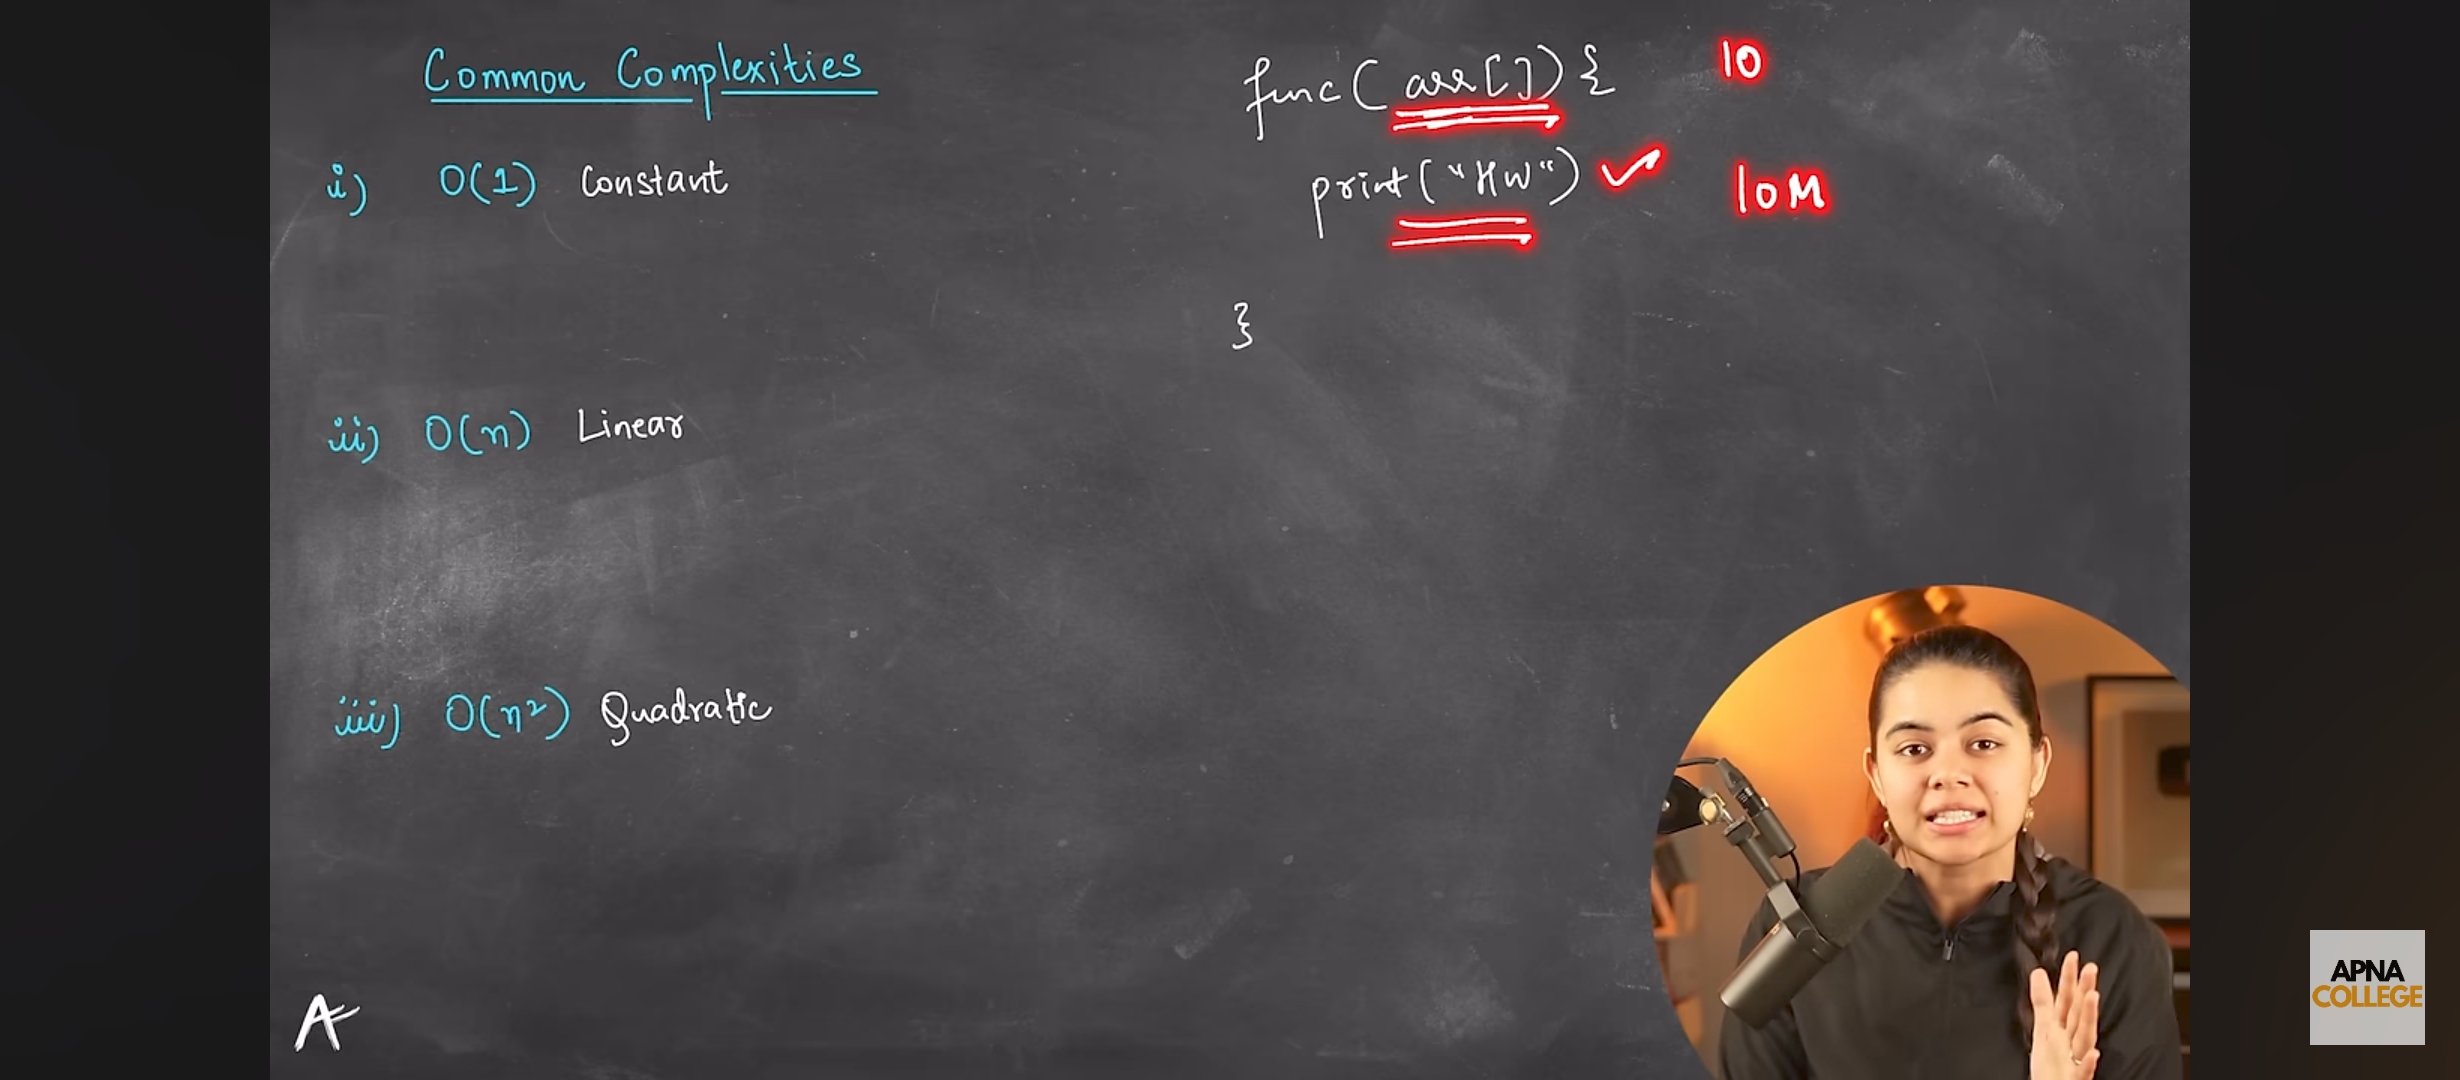 Common Complexities
i) O(1) Constant
ii) O(n) Linear
iii) O(n²) Quadratic
func(arr[]){ 10
print("HW") 10M
}
A
APNA
COLLEGE